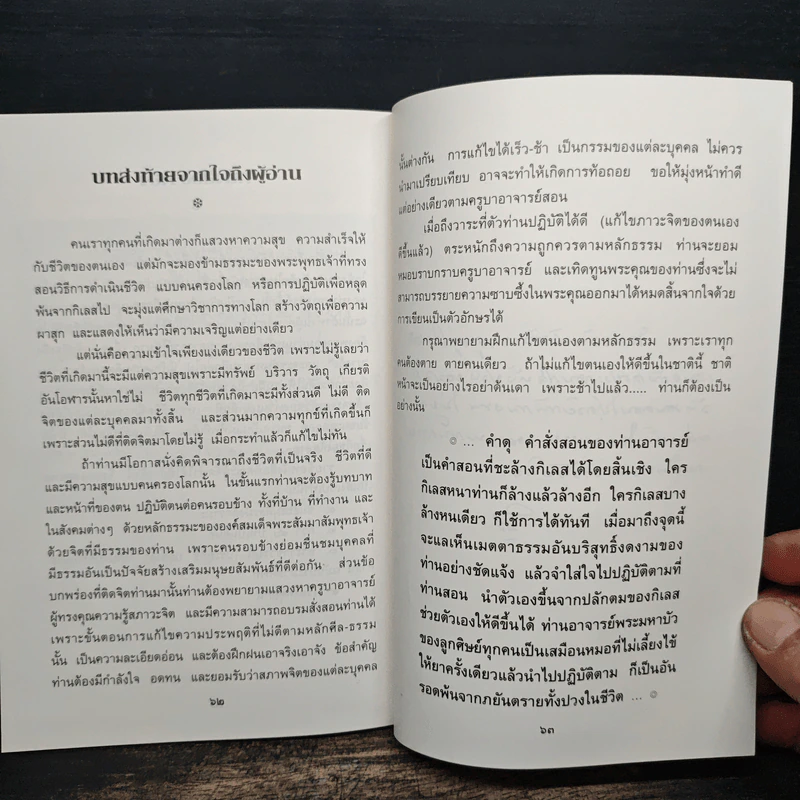 บทส่งท้ายจากใจถึงผู้อ่าน
คนเราทุกคนที่เกิดมาต่างก็แสวงหาความสุข ความสำเร็จให้
กับชีวิตของตนเอง แต่มักจะมองข้ามธรรมะของพระพุทธเจ้าที่ทรง
สอนวิธีการดำเนินชีวิต แบบคนครองโลก หรือการปฏิบัติเพื่อหลุด
พ้นจากกิเลสไป จะมุ่งแต่ศึกษาวิชาการทางโลก สร้างวัตถุเพื่อความ
ผาสุก และแสดงให้เห็นว่ามีความเจริญแต่อย่างเดียว
แต่นั่นคือความเข้าใจเพียงแง่เดียวของชีวิต เพราะไม่รู้เลยว่า
ชีวิตที่เกิดมานี้จะมีแต่ความสุขเพราะมีทรัพย์ บริวาร วัตถุ เกียรติ
อันโอฬารนั้นหาใช่ไม่ ชีวิตทุกชีวิตที่เกิดมาจะมีทั้งส่วนดี ไม่ดี ติด
จิตของแต่ละบุคคลมาทั้งสิ้น และส่วนมากความทุกข์ที่เกิดขึ้นก็
เพราะส่วนไม่ดีที่ติดจิตมาโดยไม่รู้ เมื่อกระทำแล้วก็แก้ไขไม่ทัน
ถ้าท่านมีโอกาสนั่งคิดพิจารณาถึงชีวิตที่เป็นจริง ชีวิตที่ดี
และมีความสุขแบบคนครองโลกนั้น ในขั้นแรกท่านจะต้องรู้บทบาท
และหน้าที่ของตน ปฏิบัติตนต่อคนรอบข้าง ทั้งที่บ้าน ที่ทำงาน และ
ในสังคมต่างๆ ด้วยหลักธรรมะขององค์สมเด็จพระสัมมาสัมพุทธเจ้า
ด้วยจิตที่มีธรรมของท่าน เพราะคนรอบข้างย่อมชื่นชมบุคคลที่
มีธรรมอันเป็นปัจจัยสร้างเสริมมนุษยสัมพันธ์ที่ดีต่อกัน ส่วนข้อ
บกพร่องที่ติดจิตท่านมานั้นท่านต้องพยายามแสวงหาครูบาอาจารย์
ผู้ทรงคุณความรู้สภาวะจิต และมีความสามารถอบรมสั่งสอนท่านได้
เพราะขั้นตอนการแก้ไขความประพฤติที่ไม่ดีตามหลักศีล-ธรรม
นั้น เป็นความละเอียดอ่อน และต้องฝึกฝนเอาจริงเอาจัง ข้อสำคัญ
ท่านต้องมีกำลังใจ อดทน และยอมรับว่าสภาพจิตของแต่ละบุคคล
๖๒
นั้นต่างกัน การแก้ไขได้เร็ว-ช้า เป็นกรรมของแต่ละบุคคล ไม่ควร
นำมาเปรียบเทียบ อาจจะทำให้เกิดการท้อถอย ขอให้มุ่งหน้าทำดี
แต่อย่างเดียวตามครูบาอาจารย์สอน
เมื่อถึงวาระที่ตัวท่านปฏิบัติได้ดี (แก้ไขภาวะจิตของตนเอง
ดีขึ้นแล้ว) ตระหนักถึงความถูกควรตามหลักธรรม ท่านจะยอม
หมอบราบกราบครูบาอาจารย์ และเทิดทูนพระคุณของท่านซึ่งจะไม่
สามารถบรรยายความซาบซึ้งในพระคุณออกมาได้หมดสิ้นจากใจด้วย
การเขียนเป็นตัวอักษรได้
กรุณาพยายามฝึกแก้ไขตนเองตามหลักธรรม เพราะเราทุก
คนต้องตาย ตายคนเดียว ถ้าไม่แก้ไขตนเองให้ดีขึ้นในชาตินี้ ชาติ
หน้าจะเป็นอย่างไรอย่าด้นเดา เพราะช้าไปแล้ว..... ท่านก็ต้องเป็น
อย่างนั้น
... คำดุ คำสั่งสอนของท่านอาจารย์
เป็นคำสอนที่ชะล้างกิเลสได้โดยสิ้นเชิง ใคร
กิเลสหนาท่านก็ล้างแล้วล้างอีก ใครกิเลสบาง
ล้างหนเดียว ก็ใช้การได้ทันที เมื่อมาถึงจุดนี้
จะแลเห็นเมตตาธรรมอันบริสุทธิ์งดงามของ
ท่านอย่างชัดแจ้ง แล้วจำใส่ใจไปปฏิบัติตามที่
ท่านสอน นำตัวเองขึ้นจากปลักตมของกิเลส
ช่วยตัวเองให้ดีขึ้นได้ ท่านอาจารย์พระมหาบัว
ของลูกศิษย์ทุกคนเป็นเสมือนหมอที่ไม่เลี้ยงไข้
ให้ยาครั้งเดียวแล้วนำไปปฏิบัติตาม ก็เป็นอัน
รอดพ้นจากภยันตรายทั้งปวงในชีวิต ...
๖๓